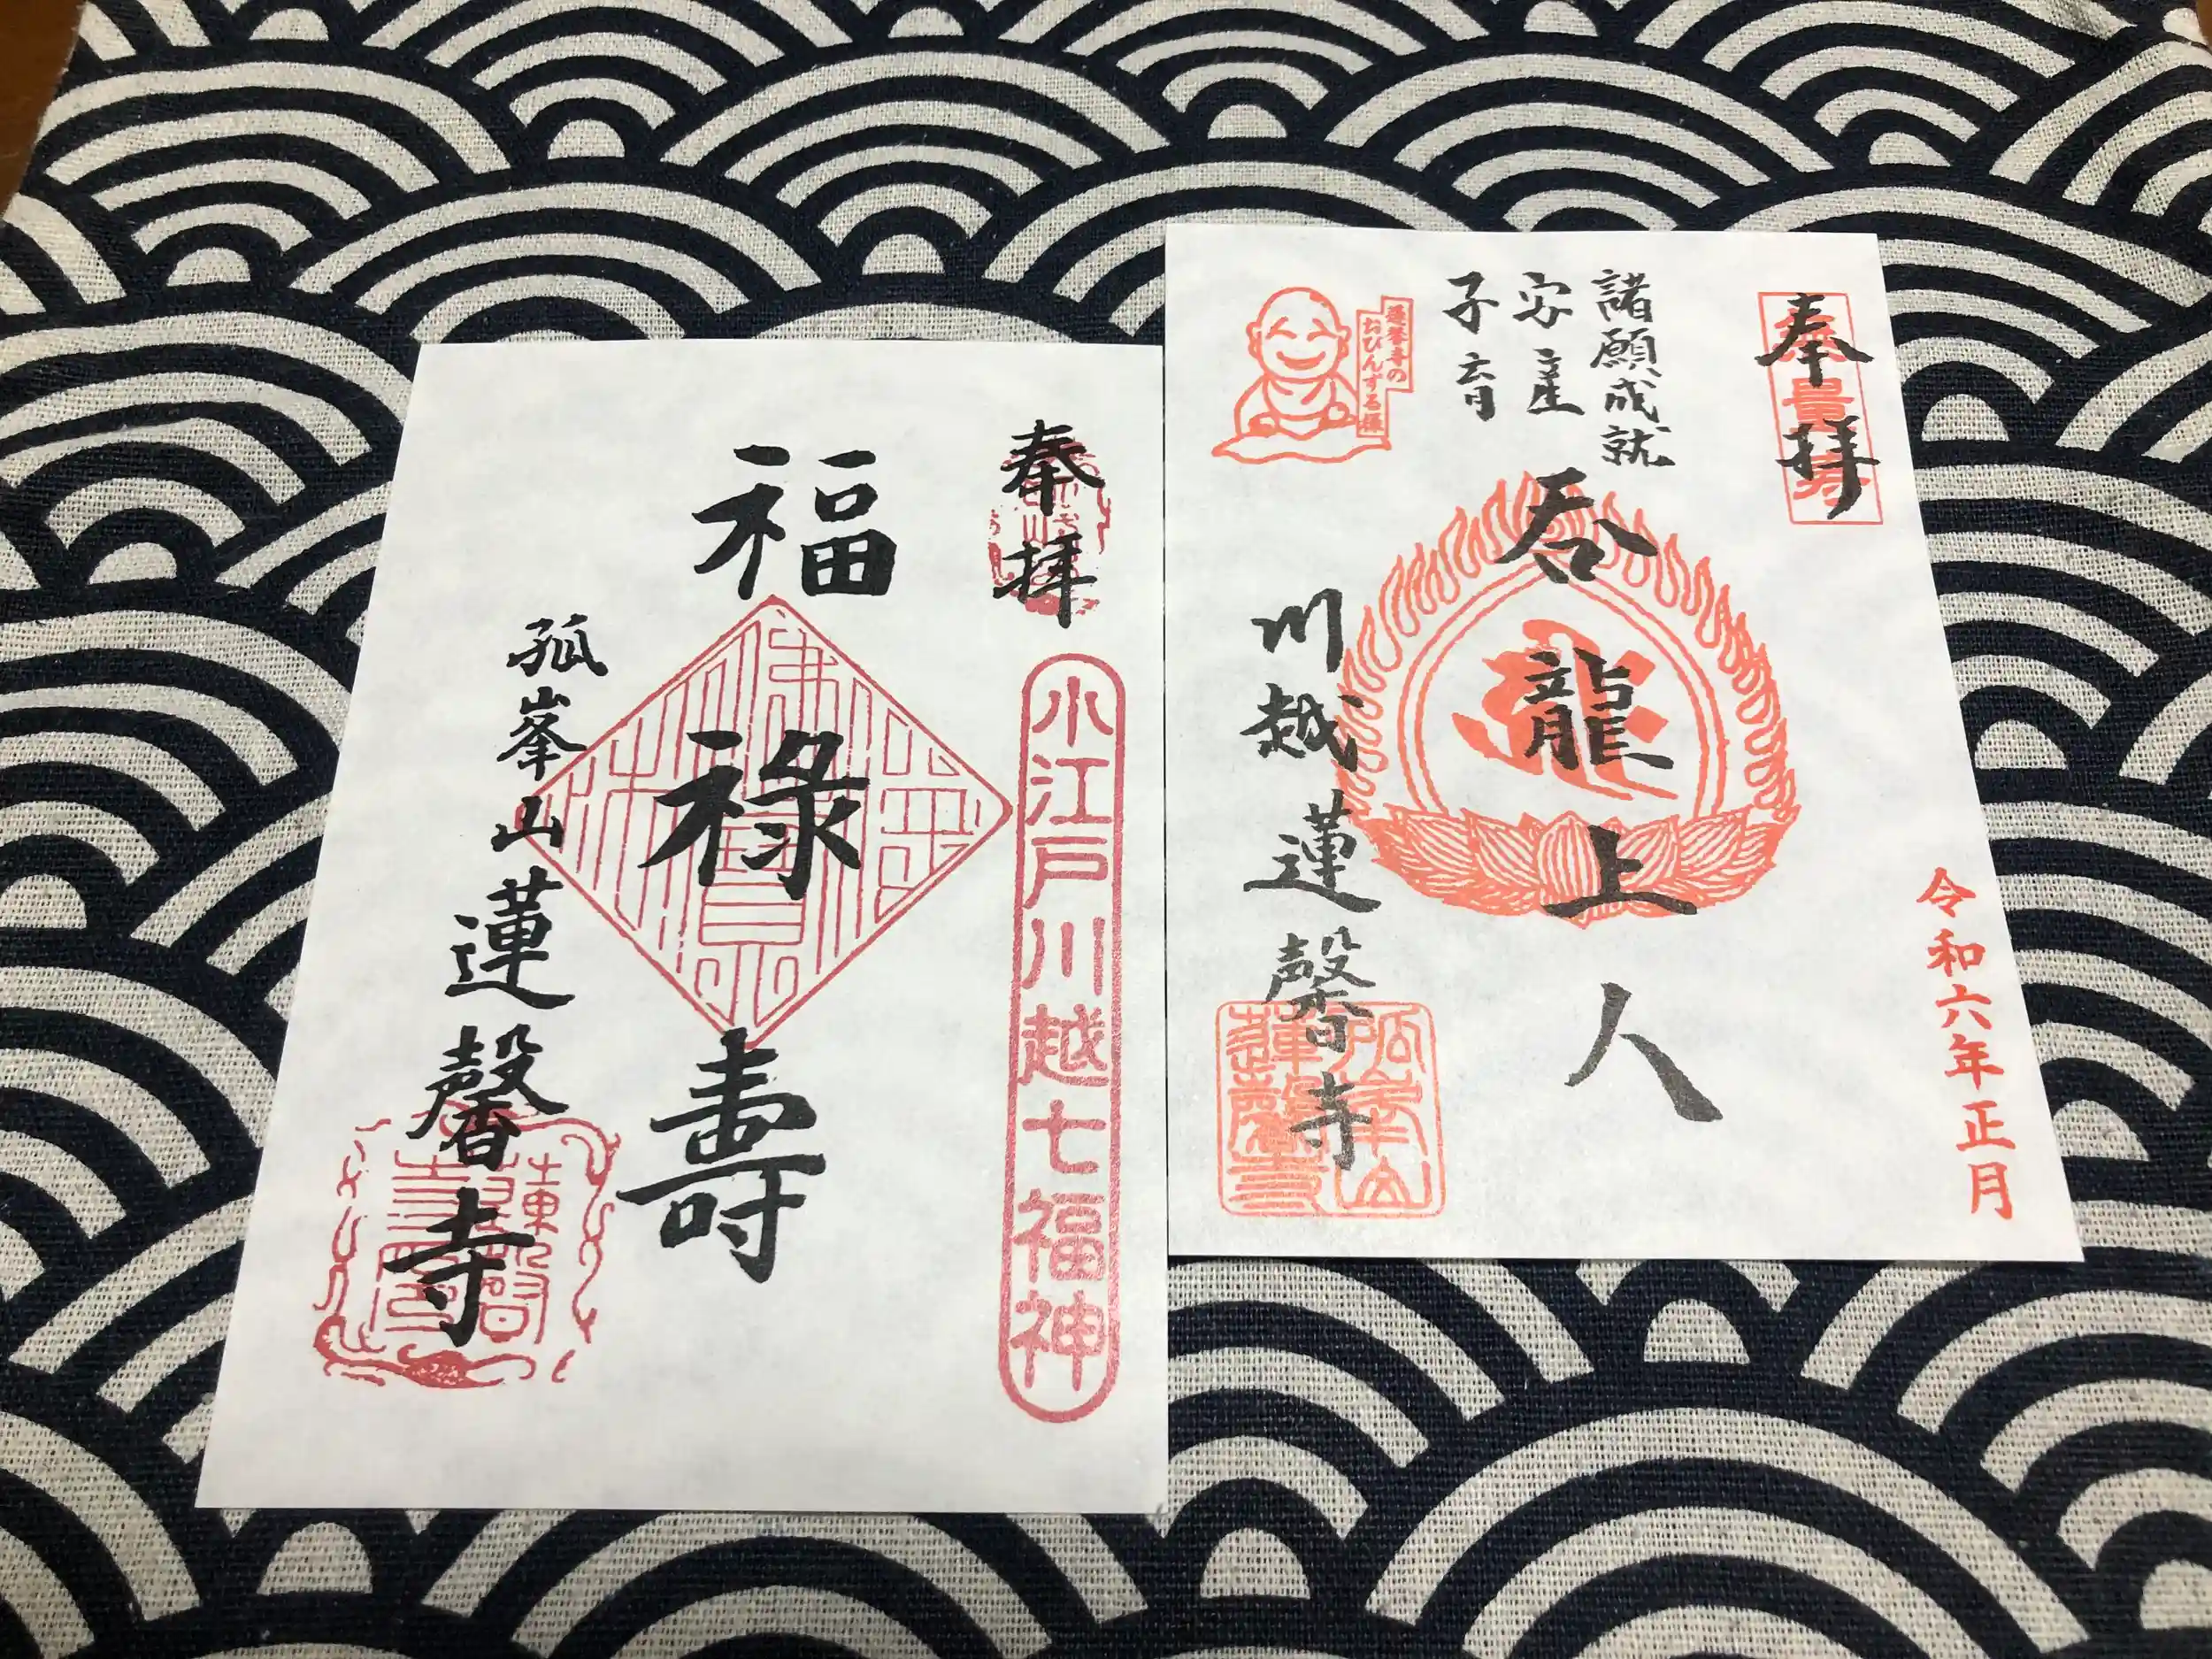 奉拝
小江戸川越七福神
福禄壽
孤峯山蓮馨寺
奉拝
令和六年正月
諸願成就
安産
子育
呑龍上人
川越蓮馨寺
蓮馨寺の
おびんずる様
孤峯山
蓮馨寺